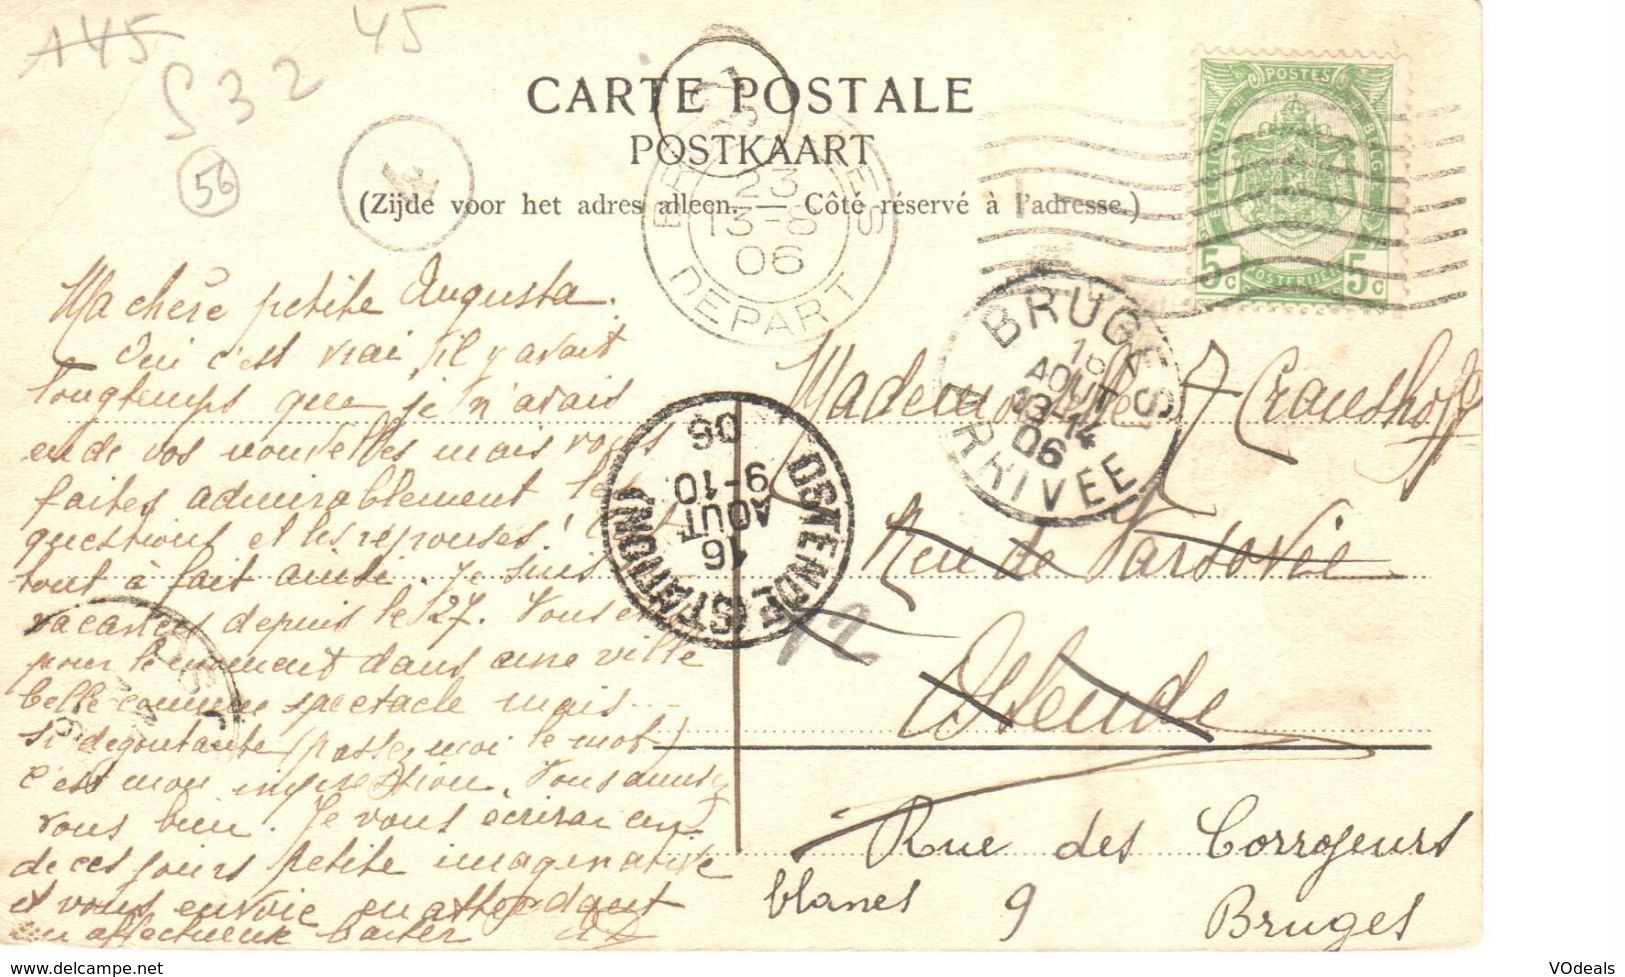 145
45
S 32
56
CARTE POSTALE
POSTKAART
(Zijde voor het adres alleen. — Côté réservé à l'adresse.)
BRUGES
23
13-8
06
DEPART
POSTES
BELGIQUE
BELGIË
5c POSTERIJEN 5c
BRUGES
16
AOUT
13-14
06
ARRIVÉE
OSTENDE (STATION)
16
AOUT
9-10
06
Ma chère petite Augusta.
Oui c'est vrai, il y avait
longtemps que je n'avais
eu de vos nouvelles mais vous
faites admirablement les
questions et les réponses!
tout à fait ainsi. Je suis
vacances depuis le 27. Vous
pour le moment dans une ville
belle comme spectacle mais...
si dégoutante (passez moi le mot)
c'est mon impression. Vous amusez
vous bien. Je vous écrirai un
de ces jours petite imaginative
et vous envoie en attendant
un affectueux baiser
Mademoiselle A Cranshoff
Rue de Varsovie
Ostende
12
Rue des Corroyeurs
blancs 9 Bruges
www.delcampe.net
VOdeals